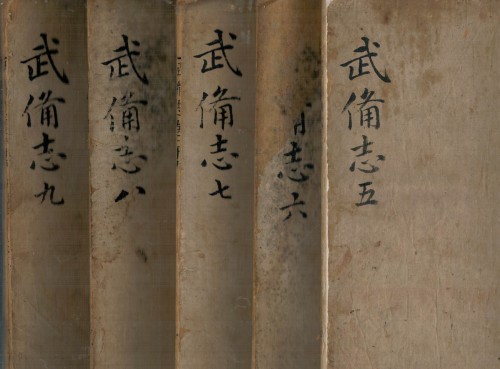 武備志五
備志六
武備志七
武備志八
武備志九